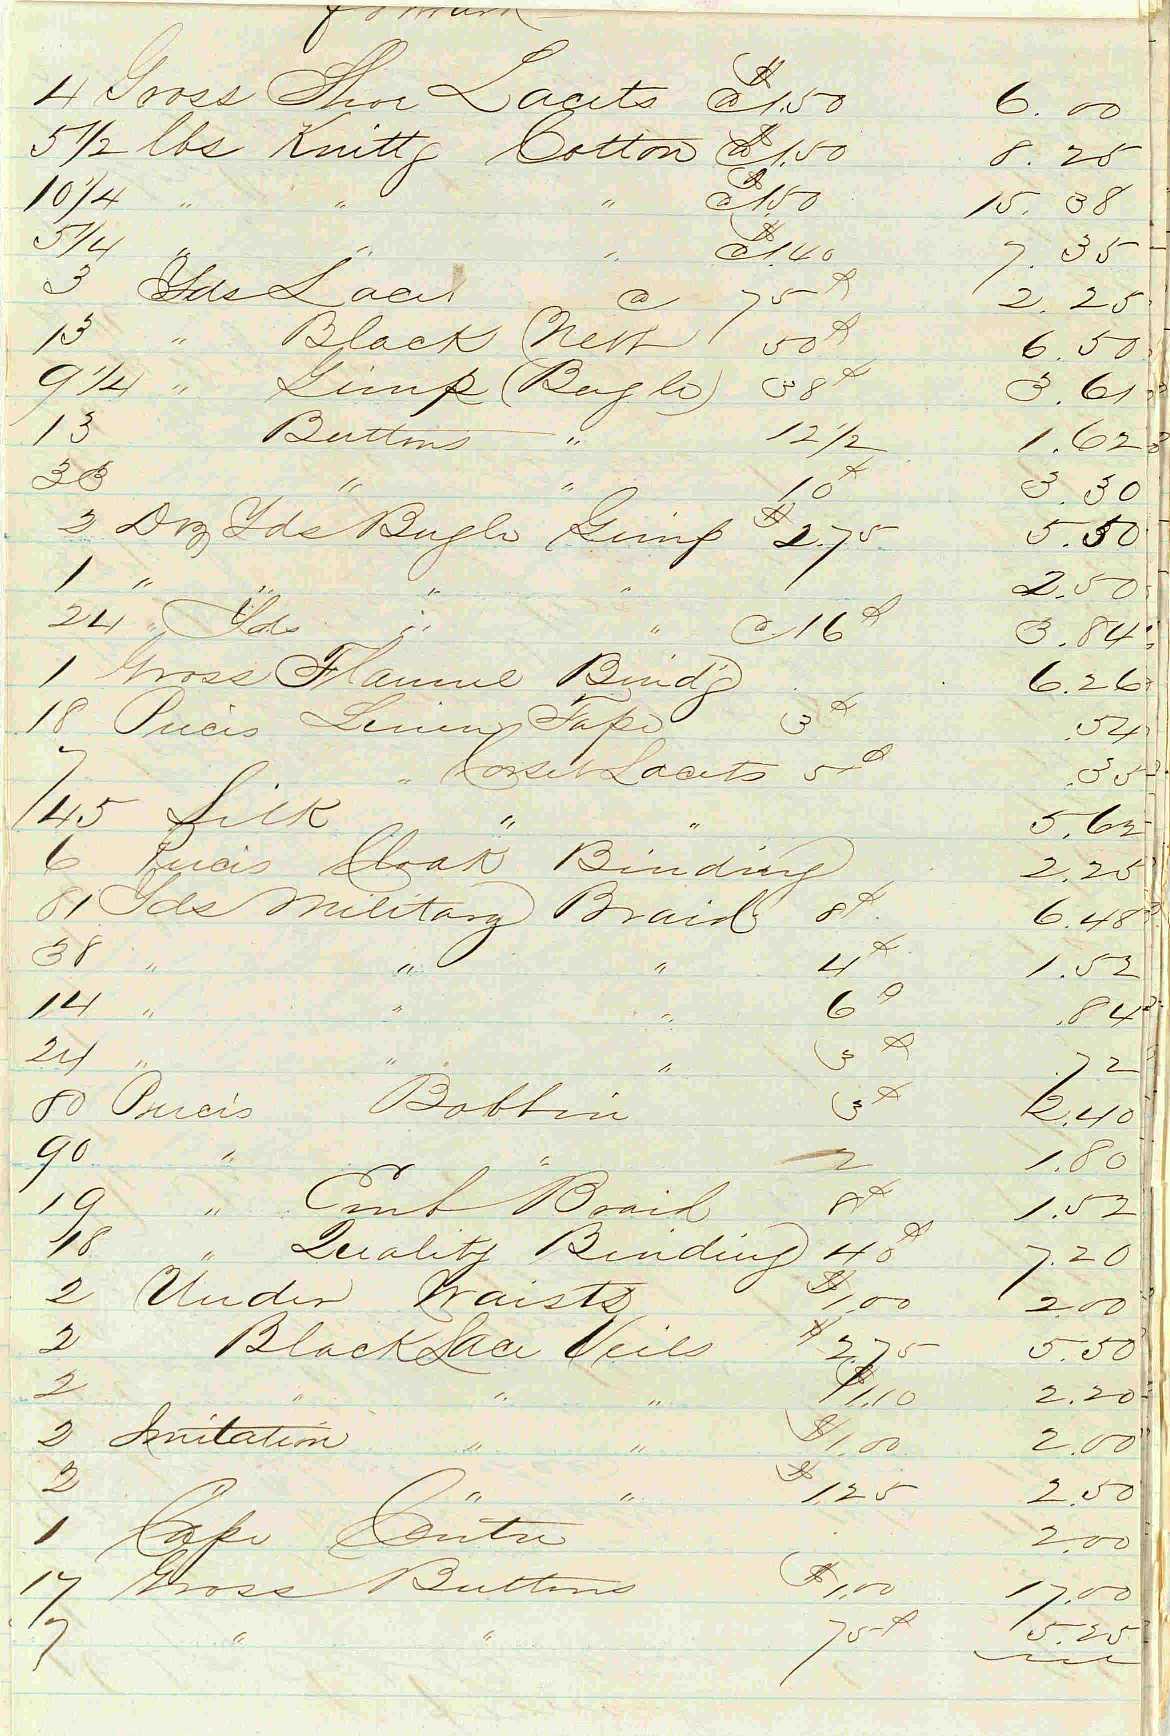 4 Gross Shoe Lacets @ $1.50 6.00
5 1/2 lbs Knittg Cotton @ $1.50 8.25
10 1/4 " " " @ $1.50 15.38
5 1/4 " " " @ $1.40 7.35
3 Yds Lace @ 75¢ 2.25
13 " Black Nett 50¢ 6.50
9 1/4 " Gimp (Bugle) 38¢ 3.61
13 Buttons " 12 1/2 1.62
33 " " 10¢ 3.30
2 Doz Yds Bugle Gimp $2.75 5.50
1 " " " " 2.50
24 " Yds " " @ 16¢ 3.84
1 Gross Flannel Bind'g 6.26
18 Pieces Linen Tape 3¢ .54
7 " Corset Lacets 5¢ .35
145 Silk " " 5.62
6 Pieces Cloak Binding 2.25
81 Yds Military Braid 8¢ 6.48
38 " " " 4¢ 1.52
14 " " " 6¢ .84
24 " " " 3¢ .72
80 Pieces Bobbin 3¢ 2.40
90 " " 2 1.80
19 " Emb Braid 8¢ 1.52
18 " Quality Binding 40¢ 7.20
2 Under Waists $1.00 2.00
2 Black Lace Veils $2.75 5.50
2 " " " $1.10 2.20
2 Imitation " " $1.00 2.00
2 " " $1.25 2.50
1 Cape Centre 2.00
17 Gross Buttons $1.00 17.00
7 " " 75¢ 5.25